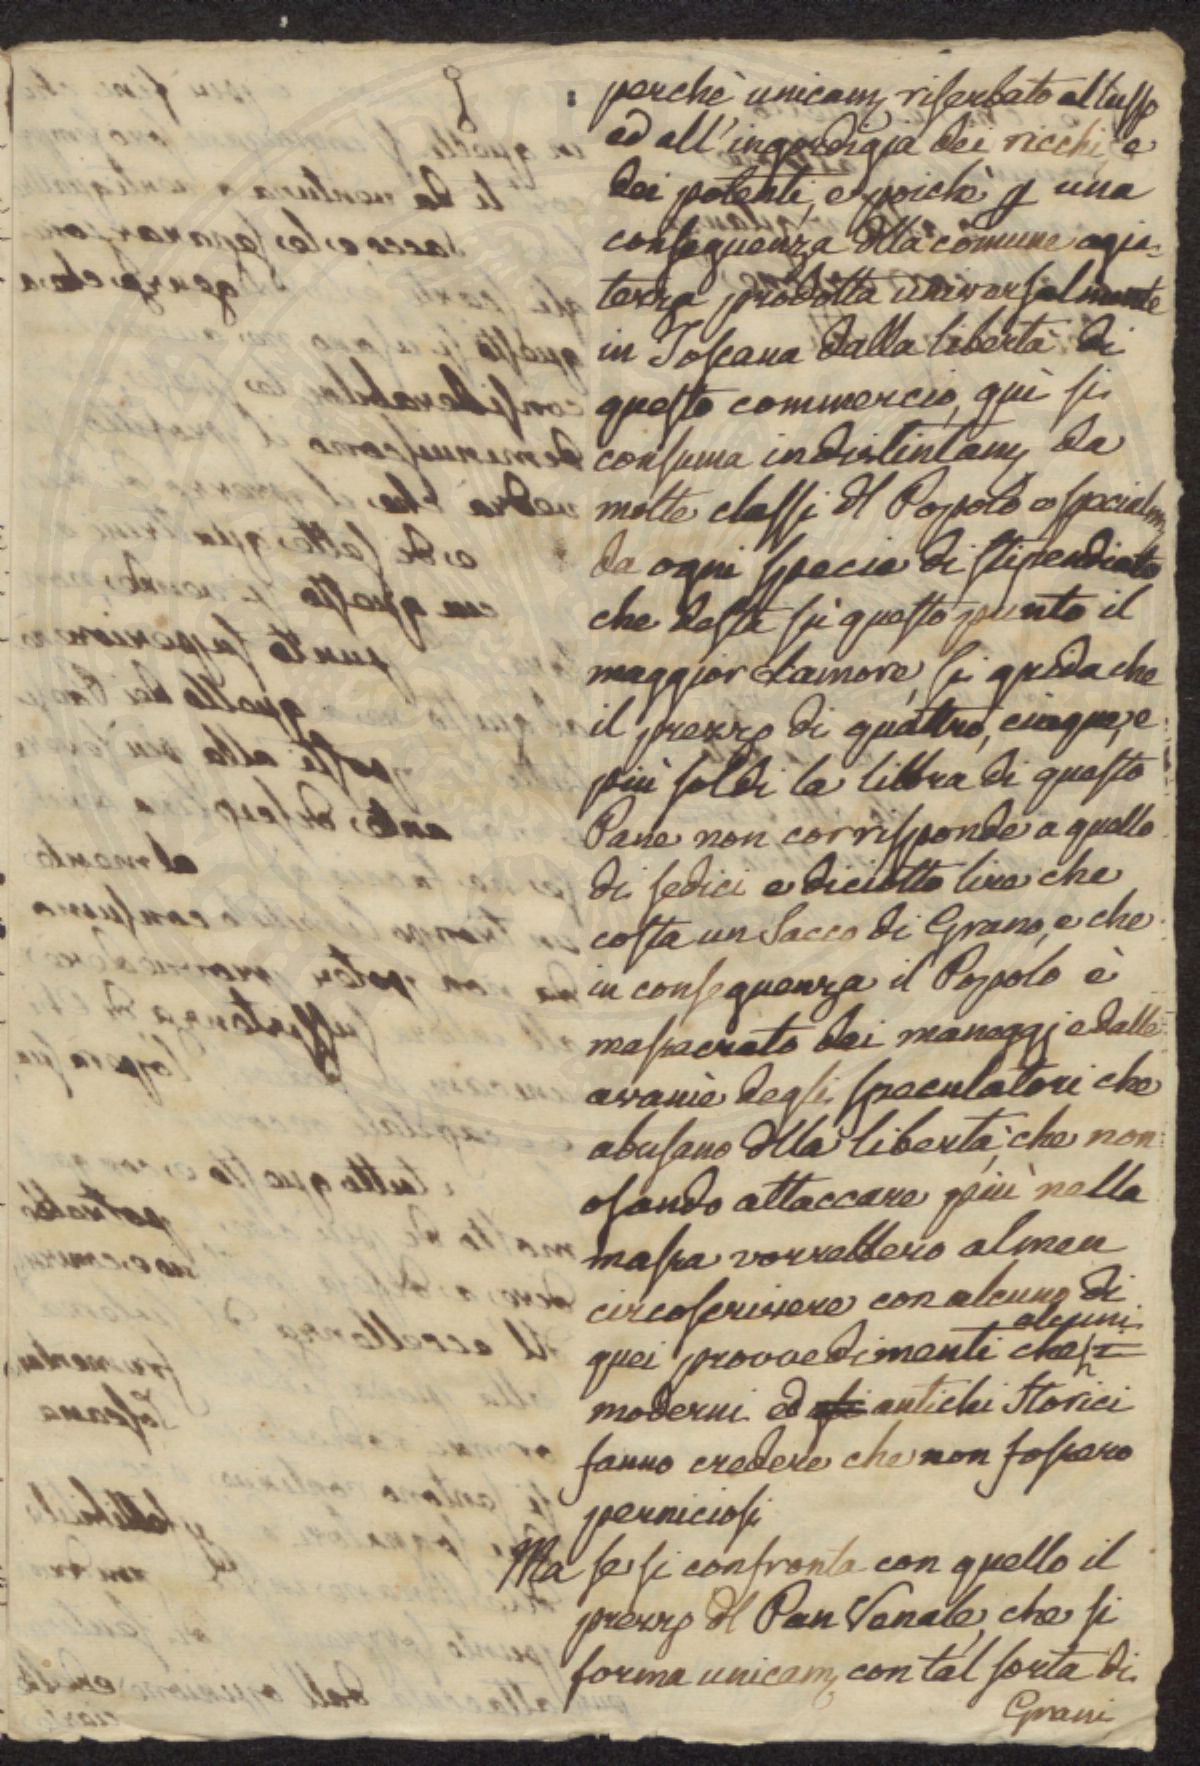 perchè unicam. riserbato al lusso
ed all'ingordigia dei ricchi, e
dei potenti, e poichè p una
conseguenza dlla comune agia-
tezza prodotta universalmente
in Toscana dalla libertà di
questo commercio, quì si
consuma indistintam. da
molte classi dl Popolo e specialm.
da ogni specie di stipendiato
che desta sù questo punto il
maggior clamore, si grida che
il prezzo di quattro, cinque, e
più soldi la libbra di questo
Pane non corrisponde a quello
di sedici e diciotto lire che
costa un Sacco di Grano, e che
in conseguenza il Popolo è
massacrato dai maneggj e dalle
avanìe degli speculatori che
abusano dlla libertà, che non
osando attaccare più nella
massa vorrebbero almen
circoscrivere con alcuno di
alcuni
quei provvedimenti che
moderni ed antichi Storici
fanno credere che non fossero
perniciosi
Ma se si confronta con quello il
prezzo dl Pan Venale, che si
forma unicam. con tal sorta di
Grani